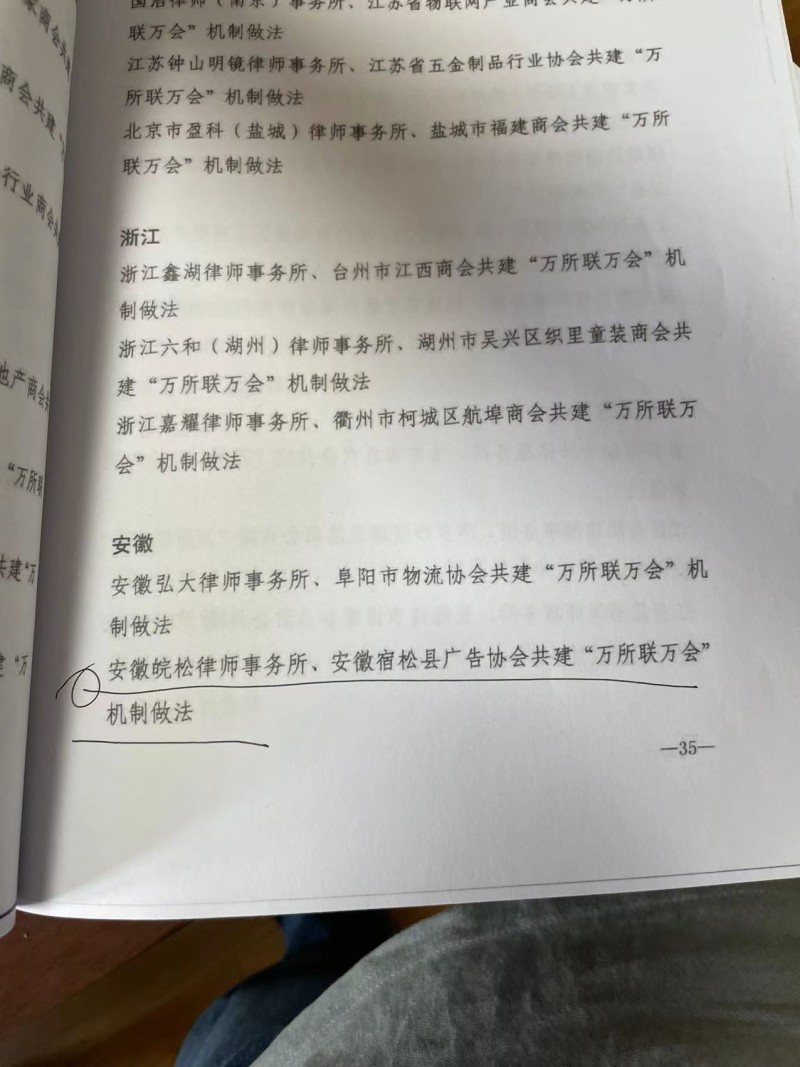 国浩律师（南京）事务所、江苏省物联网产业商会共建“万所
联万会”机制做法
江苏钟山明镜律师事务所、江苏省五金制品行业协会共建“万
所联万会”机制做法
北京市盈科（盐城）律师事务所、盐城市福建商会共建“万所
联万会”机制做法
浙江
浙江鑫湖律师事务所、台州市江西商会共建“万所联万会”机
制做法
浙江六和（湖州）律师事务所、湖州市吴兴区织里童装商会共
建“万所联万会”机制做法
浙江嘉耀律师事务所、衢州市柯城区航埠商会共建“万所联万
会”机制做法
安徽
安徽弘大律师事务所、阜阳市物流协会共建“万所联万会”机
制做法
安徽皖松律师事务所、安徽宿松县广告协会共建“万所联万会”
机制做法
—35—
商会共
商会共建“
行业商会共
地产商会共
“万所联
共建“万
建“万